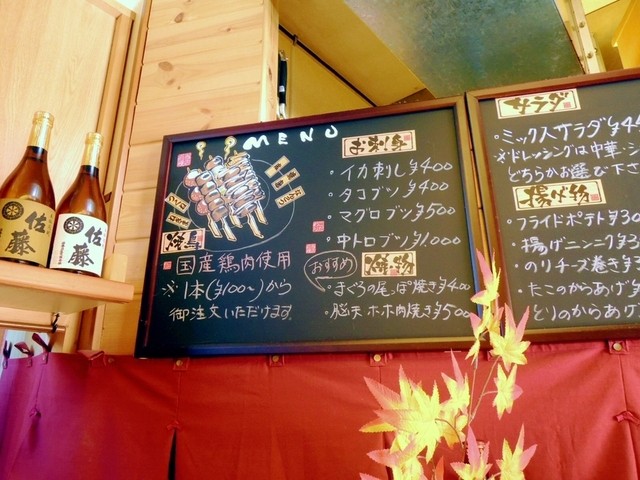 佐藤
佐藤
MENU
お刺身
・イカ刺し ¥400
・タコブツ ¥400
・マグロブツ ¥500
・中トロブツ ¥1,000
焼鳥
国産鶏肉使用
※1本(¥100〜)から
御注文いただけます。
おすすめ
焼物
・まぐろの尾っぽ焼き ¥400
・脳天・ホホ肉焼き ¥500
サラダ
・ミックスサラダ ¥4
※ドレッシングは中華・シ
どちらかお選び下さ
揚げ物
・フライドポテト ¥30
・揚げニンニク ¥3
・のりチーズ巻き ¥3
・たこのからあげ
・とりのからあげ